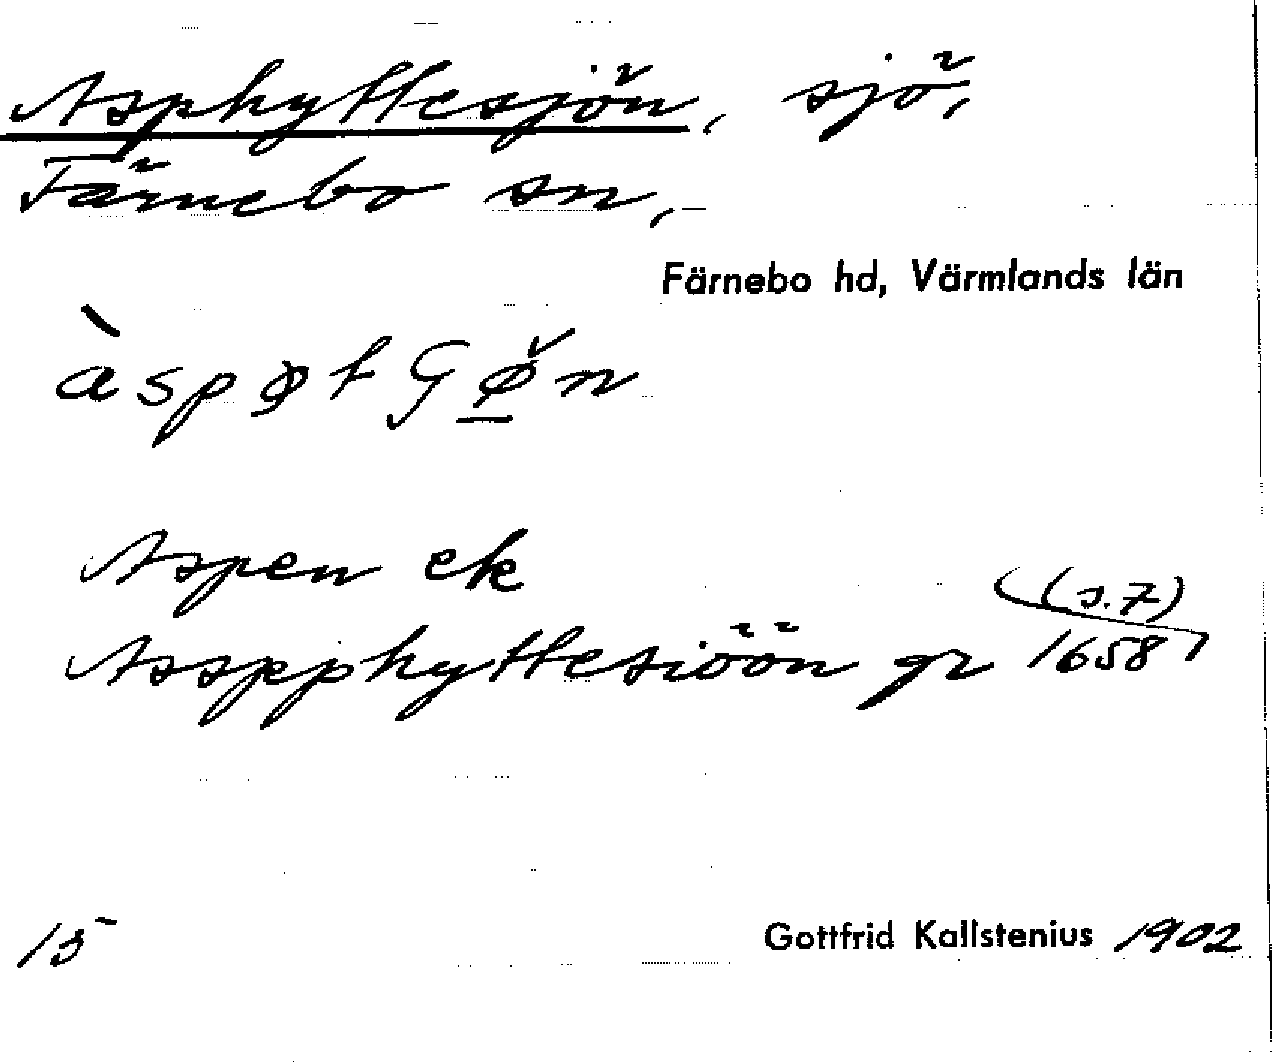 Asphyttesjön, sjö,
Färnebo sn,
Färnebo hd, Värmlands län
Aspen ek
(s. 7)
Asspphyttesiöön gr 1658
15
Gottfrid Kallstenius 1902